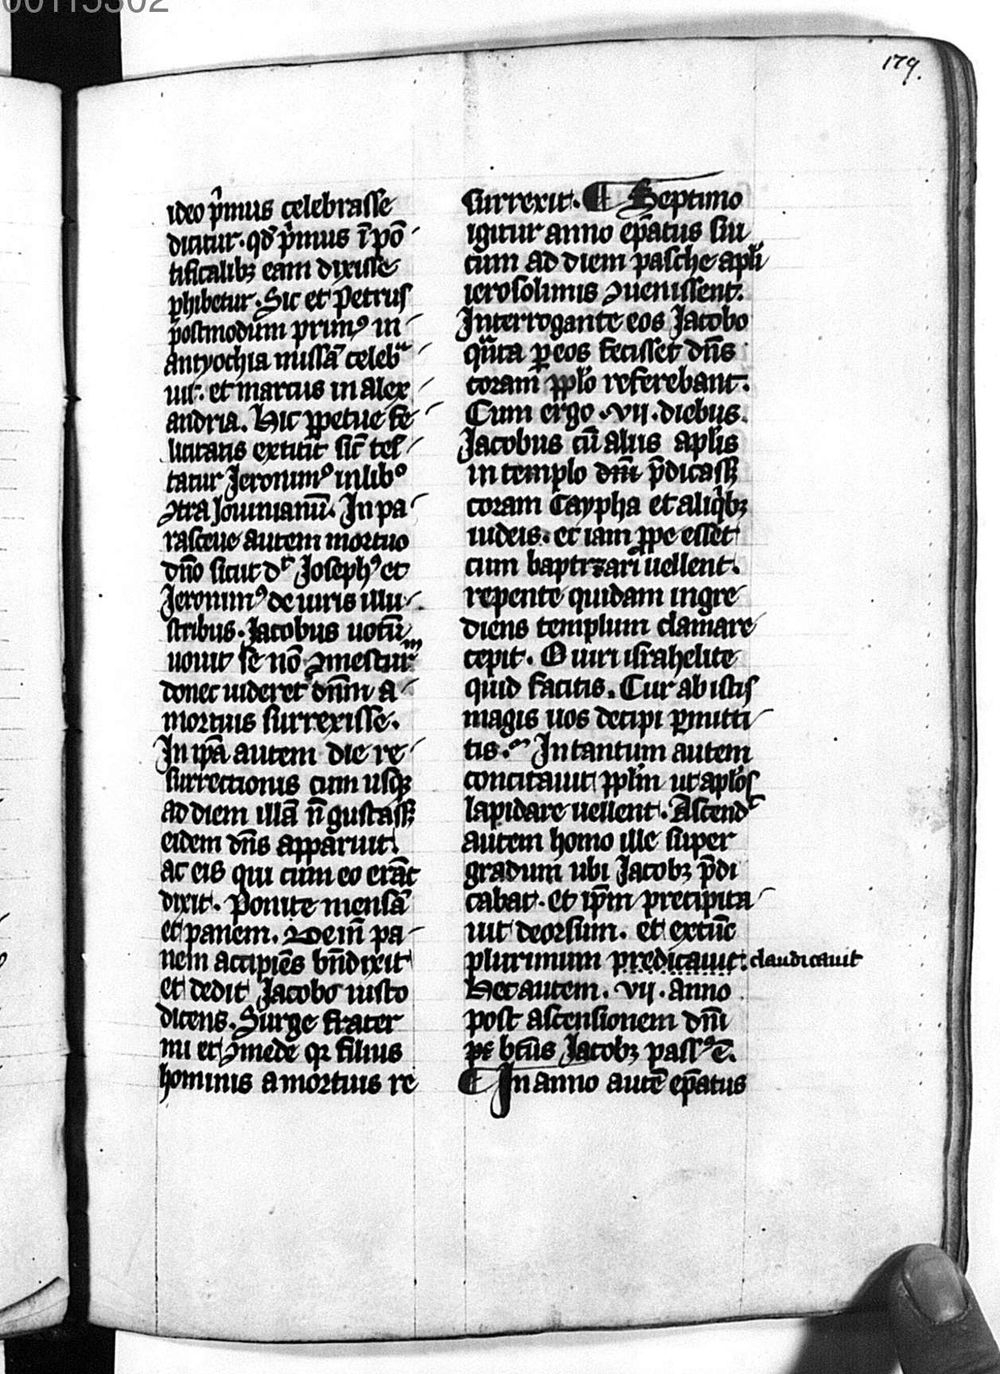 00115302
179.
ideo p̾mus celebrasse
dicitur· qđ p̾mus ī põ
tificalibꝫ eam dixisse
ꝓhibetur. Sic et Petrus
postmodum primꝰ in
antyochia missā celebᵃ
uit. et marcus in alex
andria. Hic ꝑpetue fe
licitatis extitit sic̄ tes
tatur Jeronimꝰ in libº
ꝯtra Jouinianū. In pa
rasceue autem mortuo
dn̄o sicut dᵗ Josephꝰ et
Jeronimꝰ de uiris illu
stribus. Jacobus uotū
uouit se nō ꝯmesturᵘᵐ
donec uideret dn̄m a
mortuis surrexisse.
In ip̄a autem die re
surrectionis cum usqꝫ
ad diem illā n̄ gustassꝫ
eidem dn̄s apparuit
ac eis qui cum eo erāt
dixit. Ponite mensā
et panem. Deīn pa
nem accipiēs bn̄dixit
et dedit Jacobo iusto
dicens. Surge frater
mi et ꝯmede qꝛ filius
hominis a mortuis re
surrexit. ¶ Septimo
igitur anno ep̄atus sui
cum ad diem pasche apl̄i
ierosolimis ꝯuenissent.
Interrogante eos Jacobo
qᵃ̄ta ꝑ eos fecisset dn̄s
coram ppl̄o referebant.
Cum ergo .vii. diebus
Jacobus cū aliis apl̄is
in templo dn̄i p̄dicassꝫ
coram Caypha et aliqⁱbꝫ
iudeis. et iam ꝓpe esset
cum baptizari uellent.
repente quidam ingre
diens templum clamare
cepit. O uiri israhelite
quid facitis. Cur ab istis
magis uos decipi ꝑmitti
tis. In tantum autem
concitauit ppl̄m ut apl̄os
lapidare uellent. Ascendᵗ
autem homo ille super
gradum ubi Jacobꝫ p̄di
cabat. et ip̄m precipita
uit deorsum. et extūc
plurimum predicauit. claudicauit
Hec autem .vii. anno
post ascensionem dn̄i
bt̄us Jacobꝫ passꝰ ē.
¶ In anno autē ep̄atus